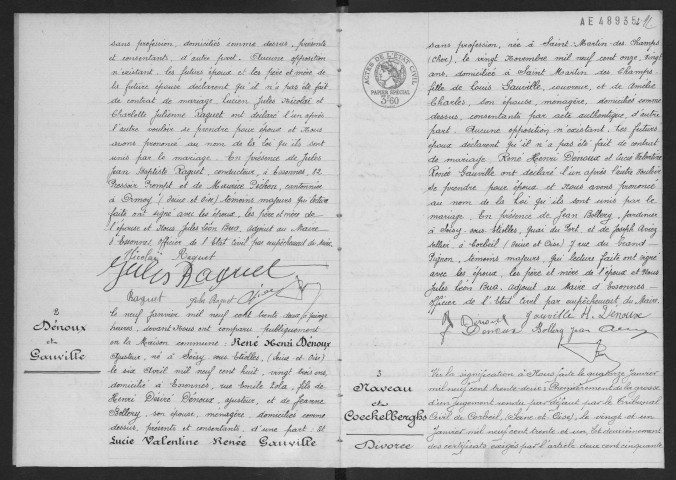 sans profession, domiciliés comme dessus, présents
et consentants, d'autre part. Aucune opposition
n'existant, les futurs époux et les père et mère de
la future épouse déclarent qu'il n'a pas été fait
de contrat de mariage. Lucien Jules Nicolaï et
Charlotte Julienne Raquet ont déclaré l'un après
l'autre vouloir se prendre pour époux et Nous
avons prononcé au nom de la loi qu'ils sont
unis par le mariage. En présence de Jules
Jean Baptiste Raquet, conducteur, à Essonnes, 12
et de Maurice Pichon, cantonnier
à Ormoy (Seine et Oise) témoins majeurs qui lecture
faite ont signé avec les époux, les père et mère de
l'épouse et Nous Jules Léon Bua, adjoint au Maire
d'Essonnes, officier de l'état civil par empêchement du Maire.
Nicolaï Raquet
Jules Raquet
Raquet
2
Dénoux
et
Gauville
le neuf Janvier mil neuf cent trente deux à quinze
heures, devant Nous ont comparu publiquement
en la Maison commune : René Henri Dénoux
ajusteur, né à Soisy sous Etiolles, (Seine et Oise)
le six Avril mil neuf cent huit, vingt trois ans,
domicilié à Essonnes, rue Emile Zola, fils de
Henri Désiré Denoux, ajusteur, et de Jeanne
Bollory, son épouse, ménagère, domiciliés comme
dessus, présents et consentants, d'une part : Et
Lucie Valentine Renée Gauville
AE 48935
ACTES DE L'ETAT CIVIL
PAPIER SPECIAL
3.60
sans profession, née à Saint-Martin-des-Champs
(Cher), le vingt Novembre mil neuf cent onze, vingt
ans, domiciliée à Saint Martin des Champs,
fille de Louis Gauville, couvreur, et de Amélie
Charles, son épouse, ménagère, domiciliés comme
dessus, consentants par acte authentique, d'autre
part. Aucune opposition n'existant. Les futurs
époux déclarent qu'il n'a pas été fait de contrat
de mariage. René Henri Denoux et Lucie Valentine
Renée Gauville ont déclaré l'un après l'autre vouloir
se prendre pour époux et Nous avons prononcé
au nom de la Loi qu'ils sont unis par le
mariage. En présence de Jean Bollory, jardinier
à Soisy-sous-Etiolles, Quai du Port, et de Joseph
sellier, à Corbeil (Seine et Oise), 7 rue du Grand
Pignon, témoins majeurs, qui lecture faite ont signé
avec les époux, les père et mère de l'époux et Nous
Jules Léon Bua, adjoint au Maire d'Essonnes
officier de l'état Civil par empêchement du Maire.
Gouville H. Denoux
Denoux
Denoux Bollory Jean
3
Naveau
et
Coeckelberghs
Divorce
Vu la signification à Nous faite le quatorze Janvier
mil neuf cent trente deux : Premièrement de la grosse
d'un jugement rendu par défaut par le Tribunal
Civil de Corbeil, (Seine et Oise), le vingt et un
Janvier mil neuf cent trente et un et deuxièmement
des certificats exigés par l'article deux cent cinquante